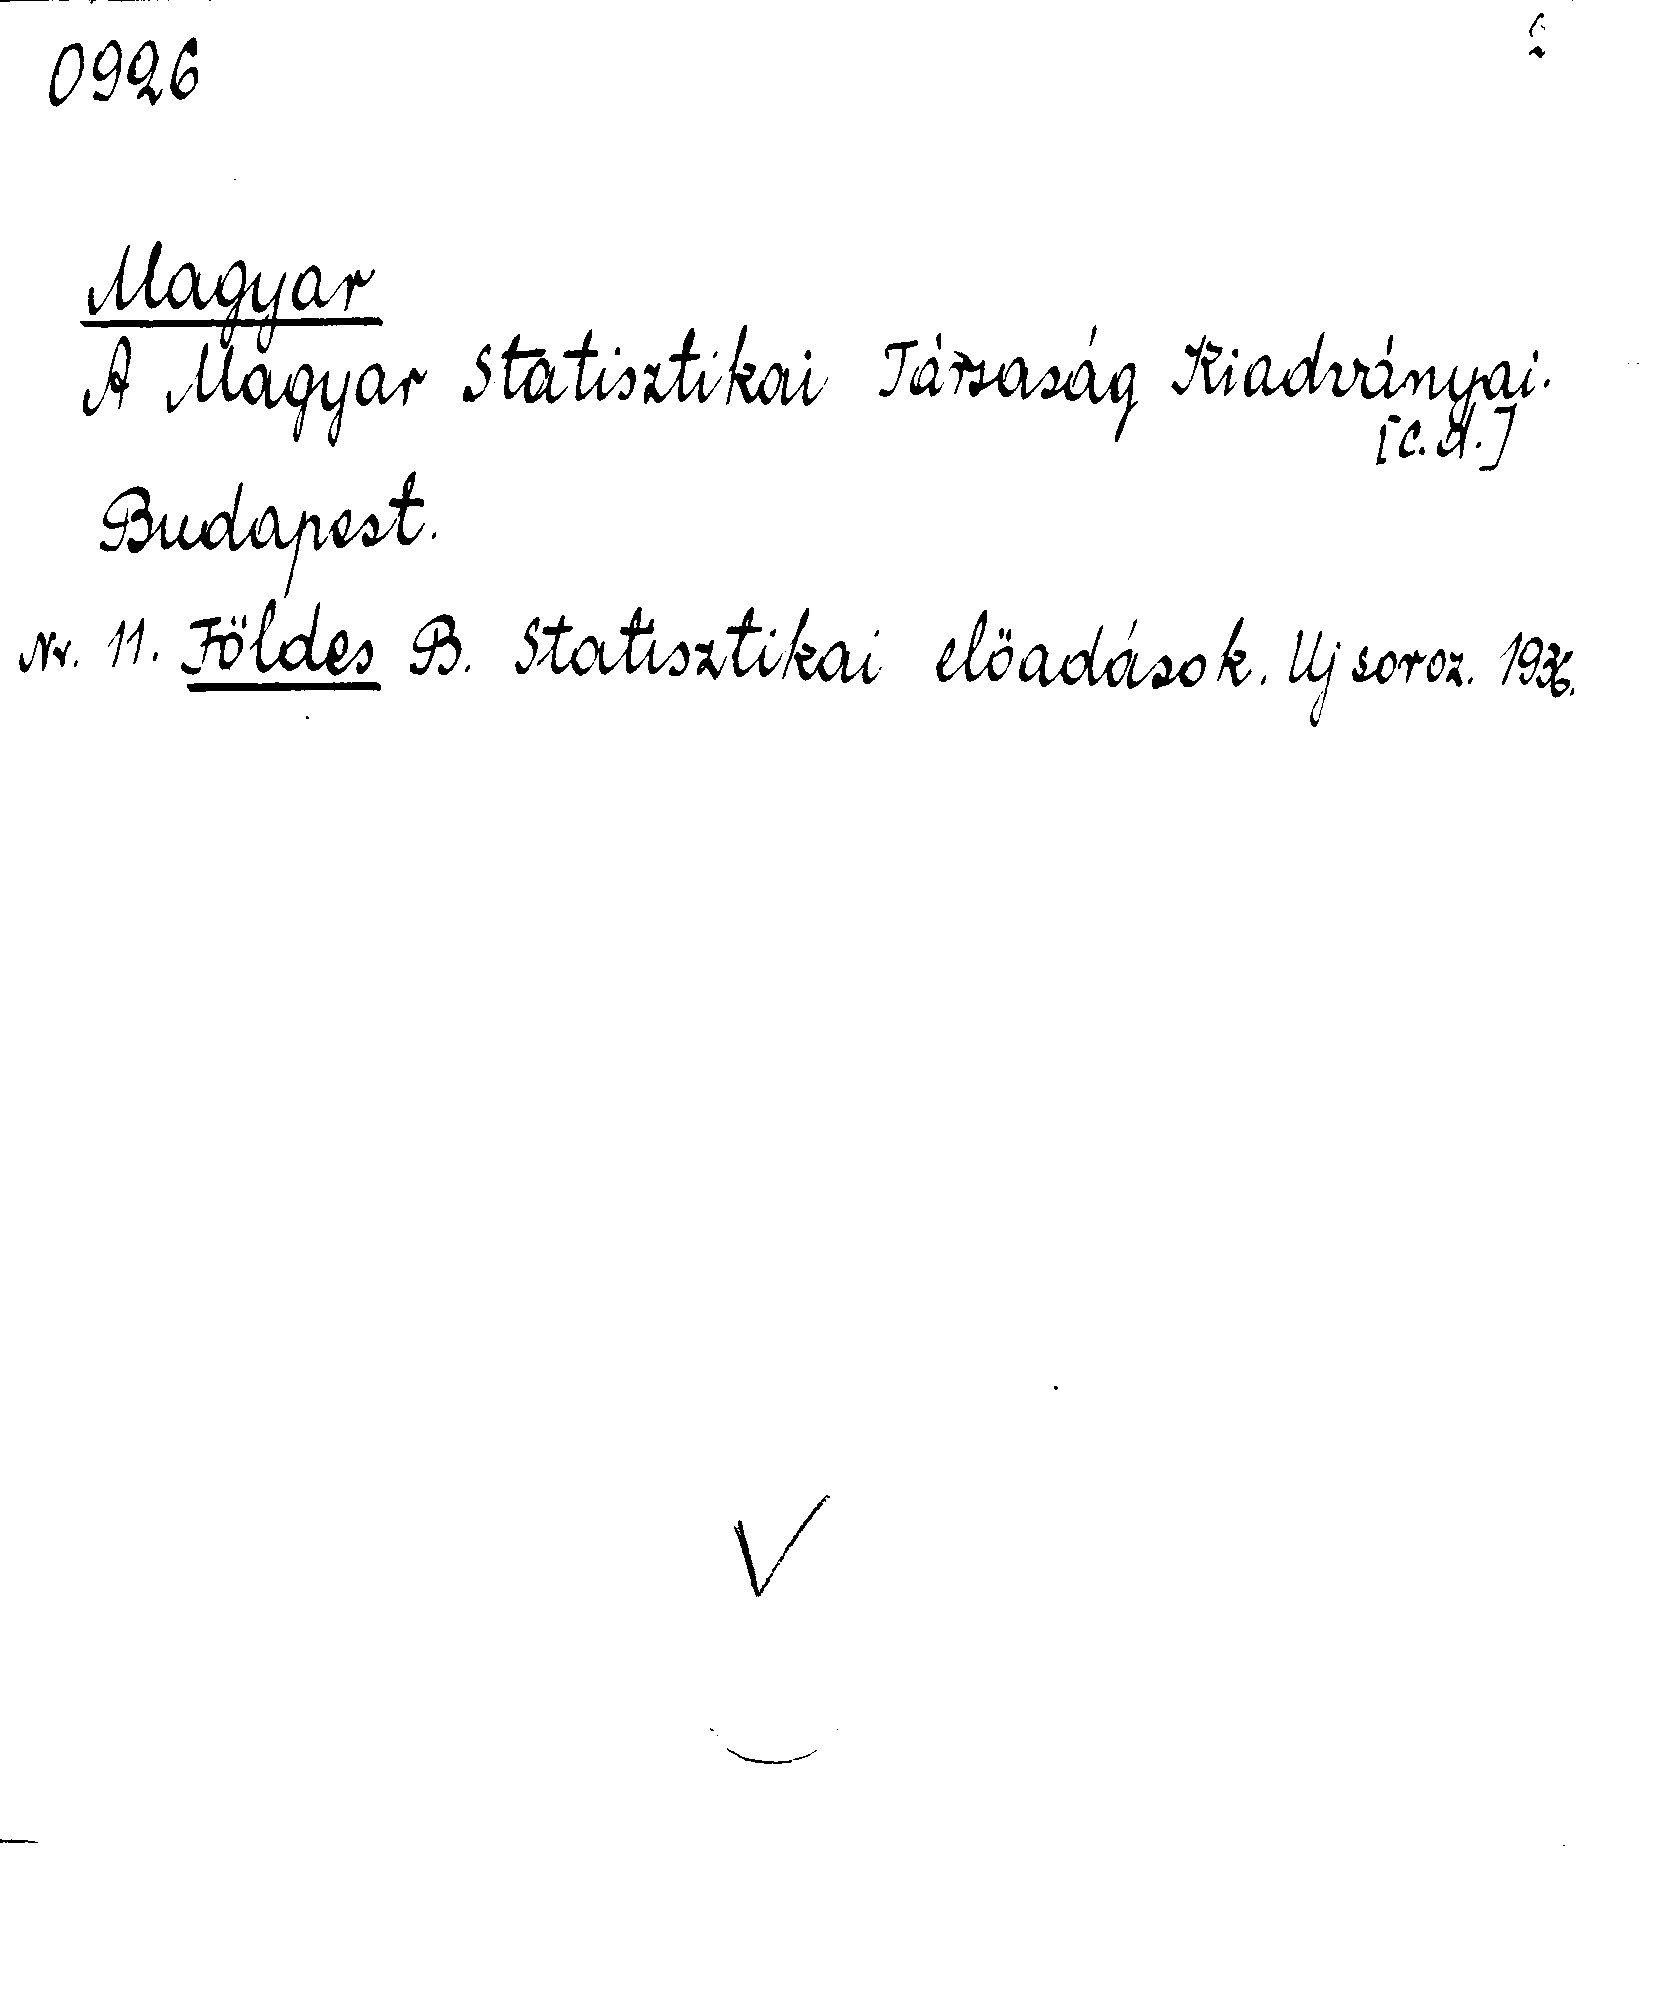 0926
Magyar
A Magyar Statisztikai Társaság Kiadványai.
[c.d.]
Budapest.
Nr. 11. Földes B. Statisztikai elöadások. Uj soroz. 1936.